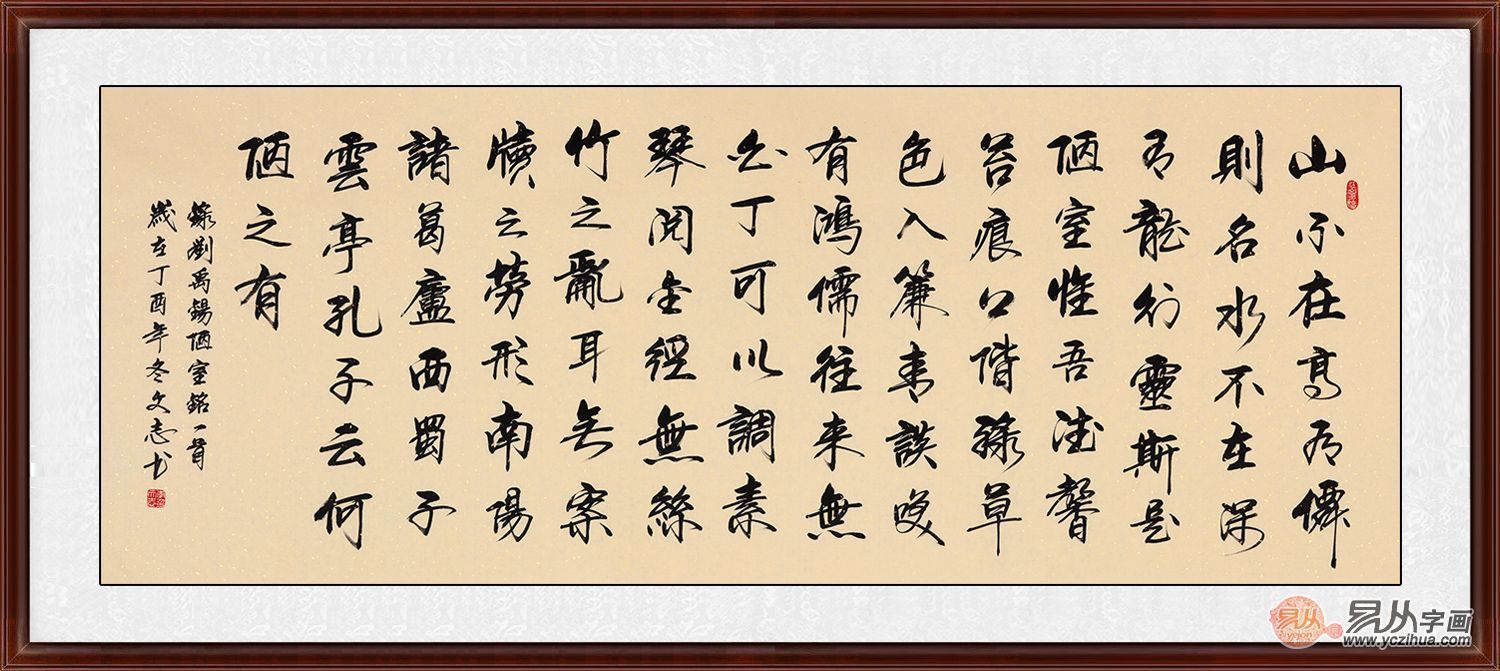 山不在高有僊
則名水不在深
有龍則靈斯是
陋室惟吾德馨
苔痕上階綠草
色入簾青談笑
有鴻儒往来無
白丁可以調素
琴閱金經無絲
竹之亂耳无案
牘之勞形南陽
諸葛廬西蜀子
雲亭孔子云何
陋之有
錄劉禹錫陋室銘一首
歲在丁酉年冬文志书
易从
易从字画
www.yczihua.com